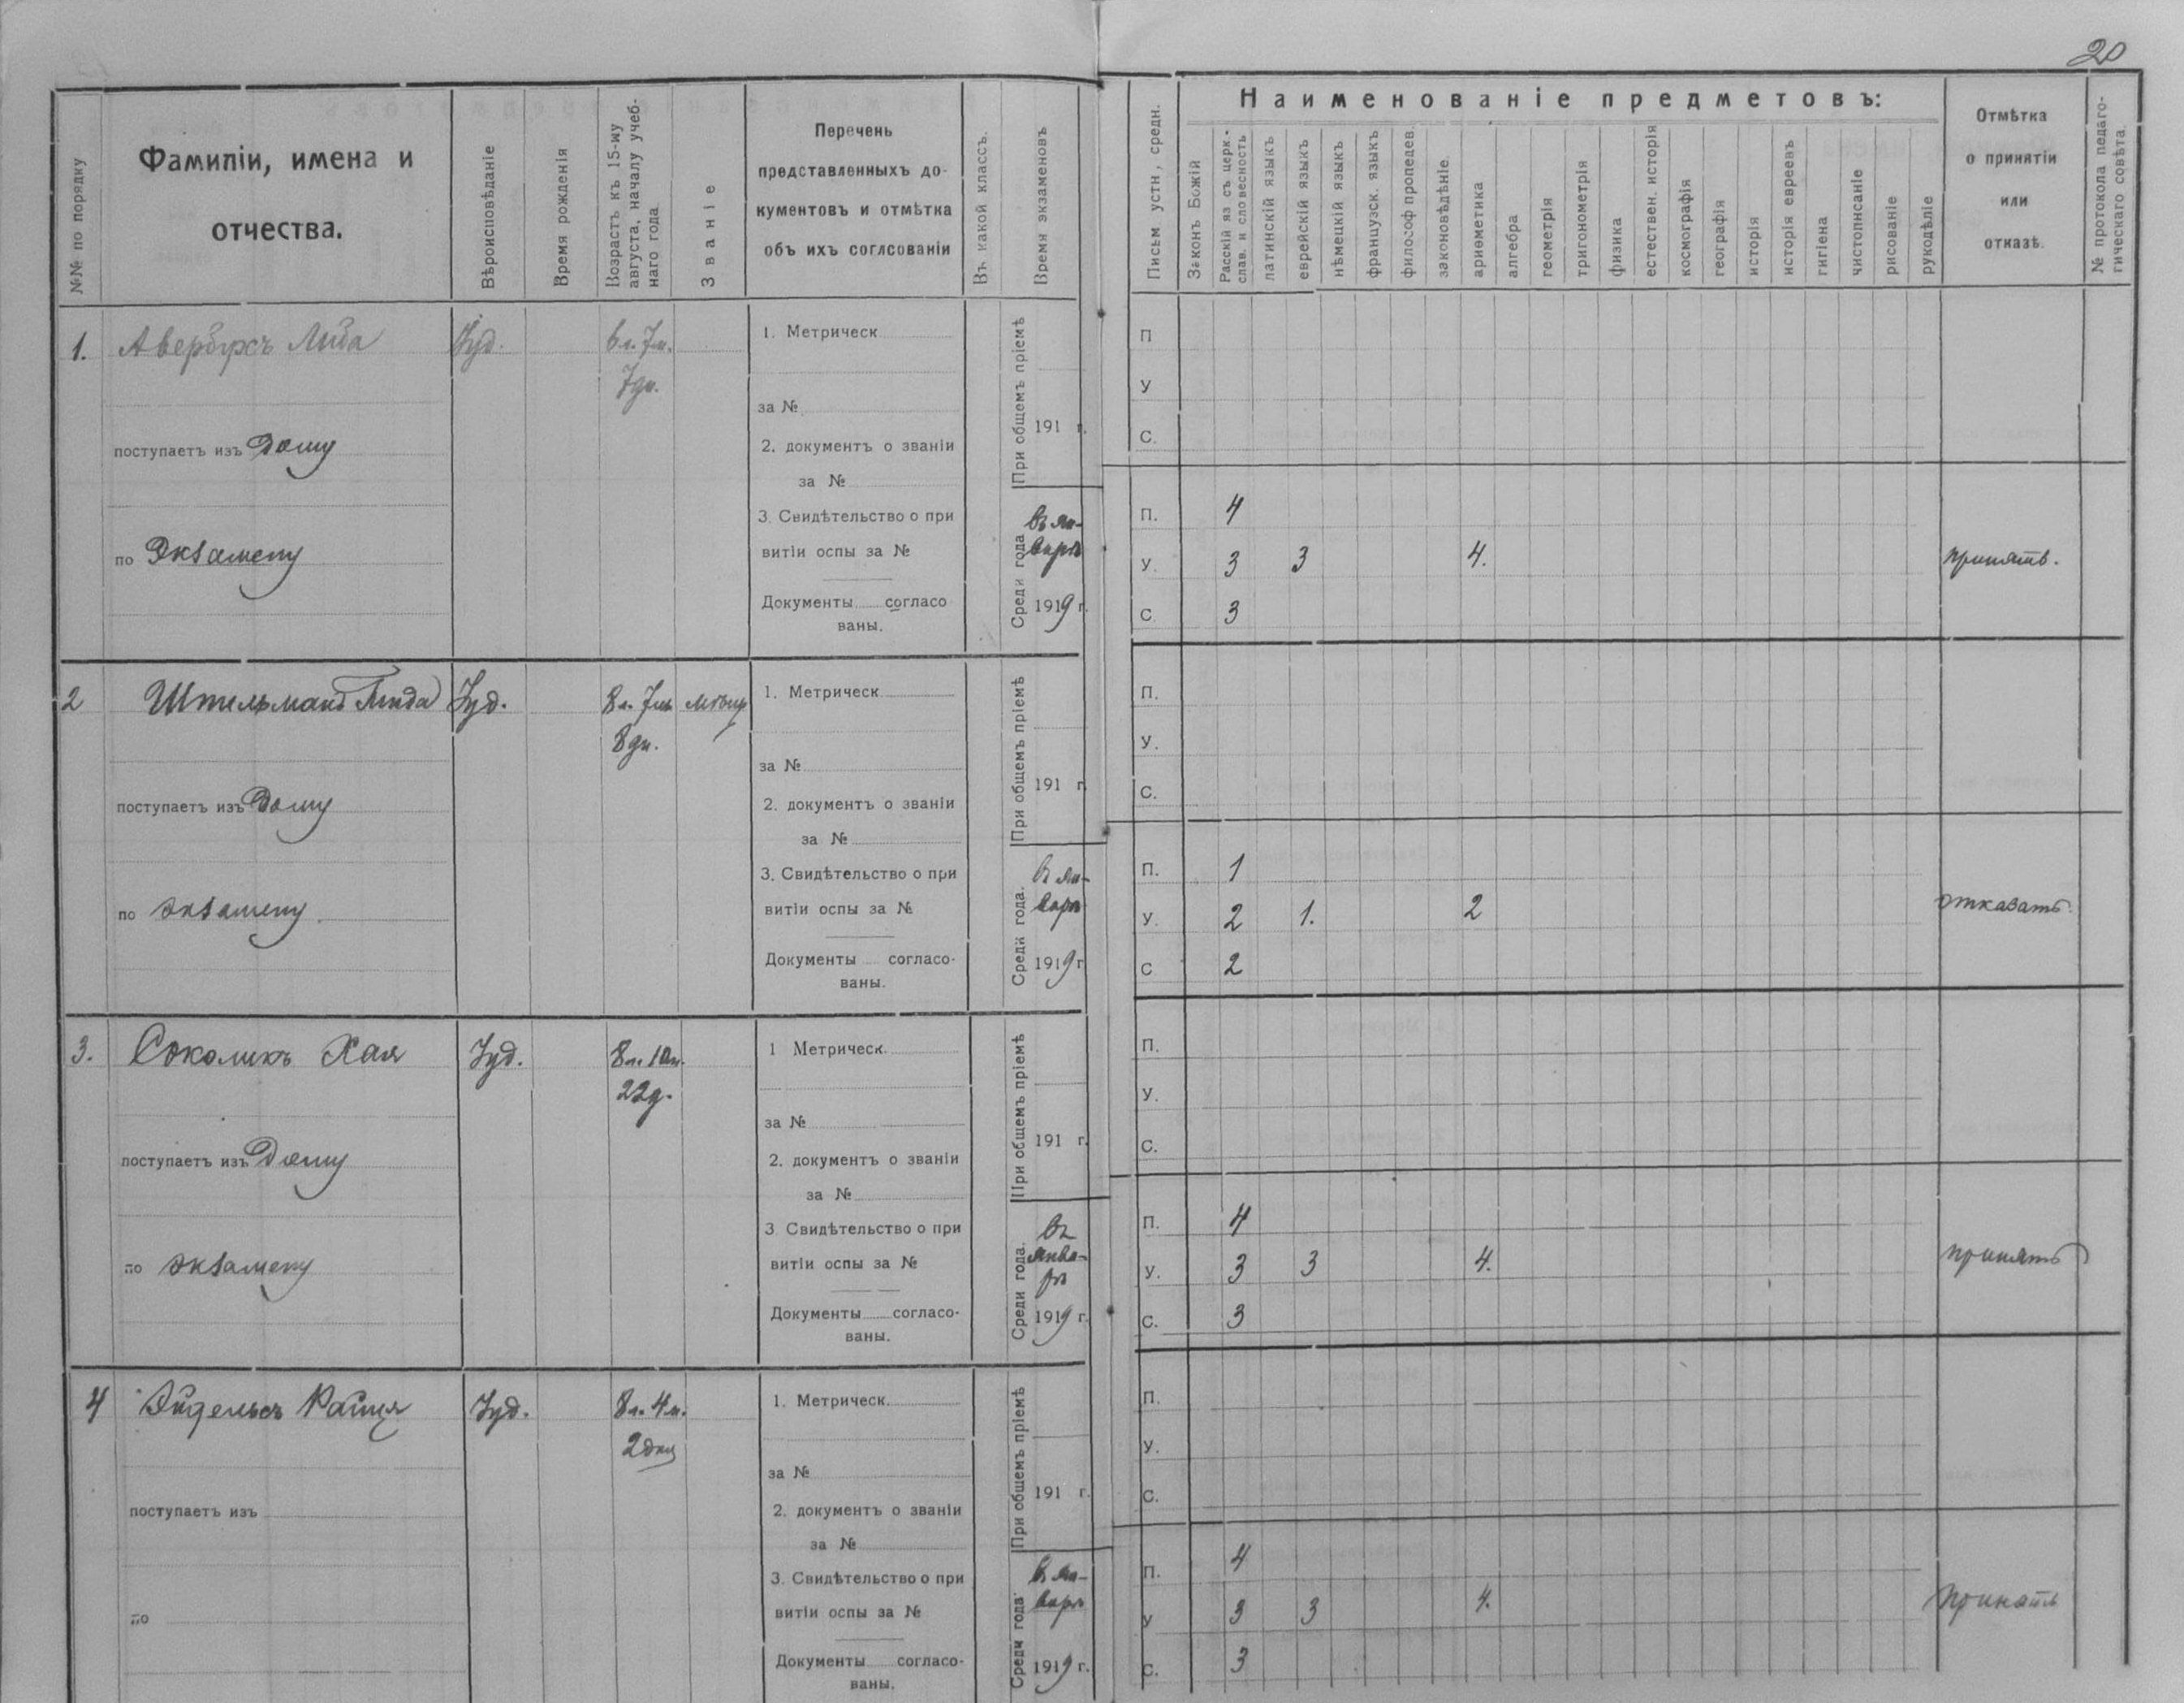 20
№№ по порядку
Фамиліи, имена и
отчества.
Вѣроисповѣданіе
Время рожденія
Возрастъ къ 15-му
августа, началу учеб-
наго года
Званіе
Перечень
представленныхъ до-
кументовъ и отмѣтка
объ ихъ соглсованіи
Въ какой классъ.
Время экзаменовъ
Письм устн, средн.
Наименованіе предметовъ:
Законъ Божій
Расскій яз съ церк.-
слав. и словесность
латинскій языкъ
еврейскій языкъ
нѣмецкій языкъ
французск. языкъ
философ пропедев.
законовѣдѣніе
ариѳметика
алгебра
геометрія
тригонометрія
физика
естествен. исторія
космографія
географія
исторія
исторія евреевъ
гигіена
чистописаніе
рисованіе
рукодѣліе
Отмѣтка
о принятіи
или
отказѣ.
№ протокола педаго-
гическаго совѣта.
1.
Авербухъ Люба
Іуд.
6 л. 7 м.
7 дн.
поступаетъ изъ Дому
по Экзамену
1. Метрическ
за №
2. документъ о званіи
за №
3. Свидѣтельство о при
витіи оспы за №
Документы согласо
ваны.
При общемъ пріемѣ
191 г.
Среди года
Въ ян-
варѣ
1919 г.
П
У
С.
П. 4
У. 3 3 4.
С 3
принять.
2
Штельманъ Гинда
Іуд.
8 л. 7 м.
8 дн.
поступаетъ изъ Дому
по экзамену
1. Метрическ
за №
2. документъ о званіи
за №
3. Свидѣтельство о при
витіи оспы за №
Документы согласо-
ваны.
При общемъ пріемѣ
191 г.
Среди года.
въ ян-
варѣ
1919 г
П.
У.
С.
П. 1
У. 2 1. 2
С 2
отказать.
3.
Соколикъ Хая
Іуд.
8 л. 10 м.
22 д.
поступаетъ изъ Дому
по экзамену
1 Метрическ.
за №
2. документъ о званіи
за №
3 Свидѣтельство о при
витіи оспы за №
Документы согласо-
ваны.
При общемъ пріемѣ
191 г.
Среди года.
Въ
янва-
рѣ
1919 г.
П.
У.
С.
П. 4
У. 3 3 4.
С. 3
принять
4
Эйдельсъ Раиця
Іуд.
8 л. 4 м.
2 дня
поступаетъ изъ
по
1. Метрическ.
за №
2. документъ о званіи
за №
3. Свидѣтельство о при
витіи оспы за №
Документы согласо-
ваны.
При общемъ пріемѣ
191 г.
Среди года.
въ ян-
варѣ
1919 г.
П.
У.
С.
П. 4
У 3 3 4.
С. 3
Принять